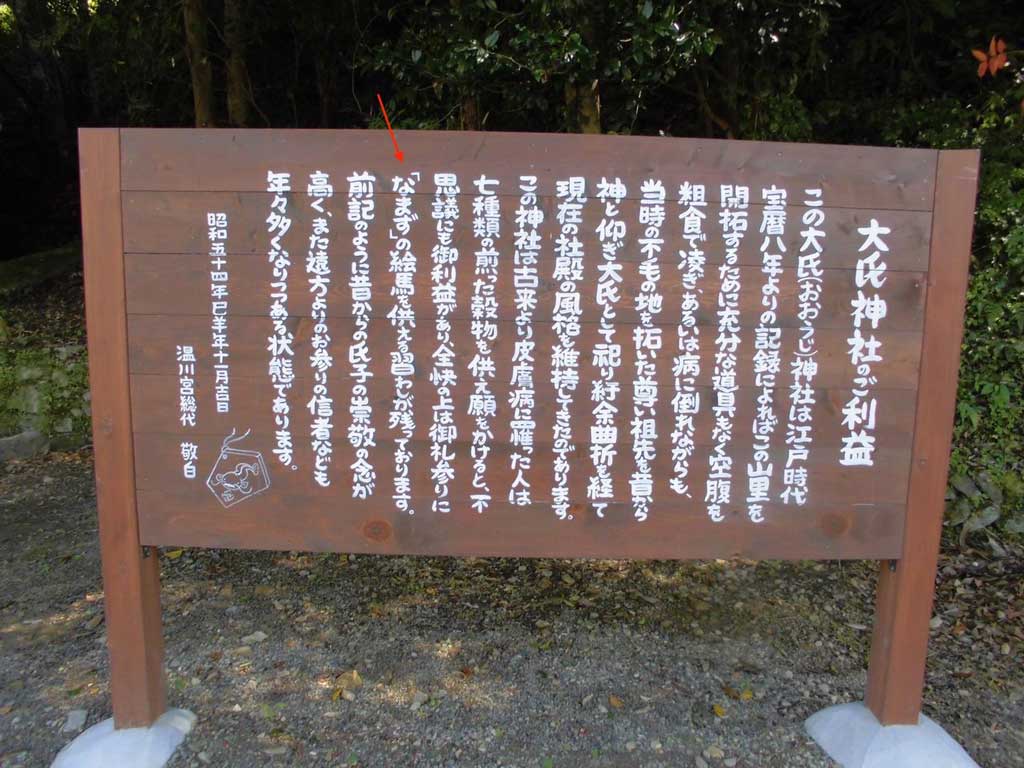 大氏神社のご利益
この大氏(おおうじ)神社は江戸時代
宝暦八年よりの記録によればこの山里を
開拓するために充分な道具もなく空腹を
粗食で凌ぎあるいは病に倒れながらも、
当時の不毛の地を拓いた尊い祖先を昔から
神と仰ぎ大氏として祀り紆余曲折を経て
現在の社殿の風格を維持してきたのであります。
この神社は古来より皮膚病に罹った人は
七種類の煎った穀物を供え願をかけると、不
思議にも御利益があり、全快の上は御礼参りに
「なまず」の絵馬を供える習わしが残っております。
前記のように昔からの氏子の崇敬の念が
高く、また遠方よりのお参りの信者なども
年々多くなりつつある状態であります。
昭和五十四年己羊年十一月吉日
温川宮総代 敬白